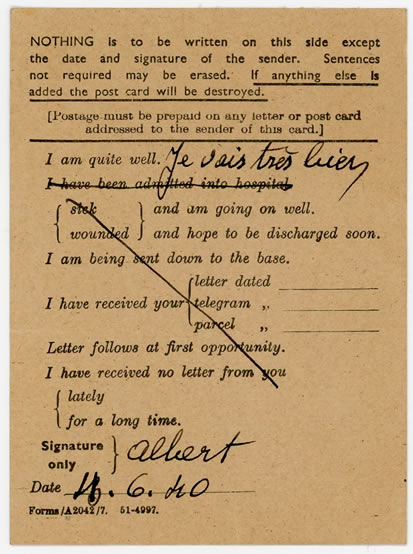 NOTHING is to be written on this side except
the date and signature of the sender. Sentences
not required may be erased. If anything else is
added the post card will be destroyed.
[Postage must be prepaid on any letter or post card
addressed to the sender of this card.]
I am quite well. Je vais très bien
I have been admitted into hospital
sick } and am going on well.
wounded } and hope to be discharged soon.
I am being sent down to the base.
letter dated
I have received your telegram „
parcel „
Letter follows at first opportunity.
I have received no letter from you
lately
for a long time.
Signature only } Albert
Date 4.6.40
Forms/A2042/7. 51-4997.